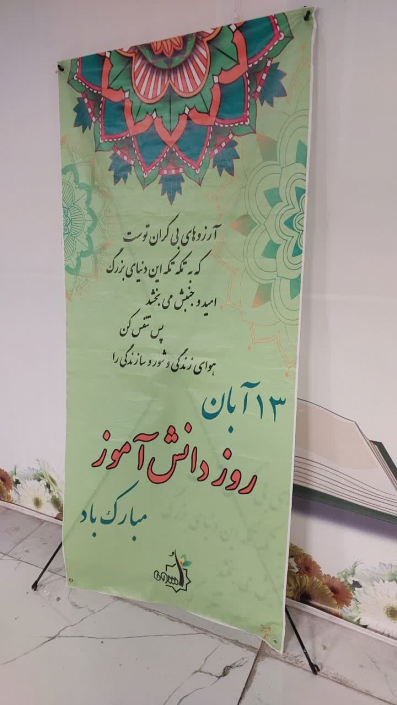 آرزوهای بی کران توست
که به تکه تکه این دنیای بزرگ
امید و جنبش می بخشد
پس تنفس کن
هوای زندگی و شور و سازندگی را
۱۳ آبان
روز دانش آموز
مبارک باد